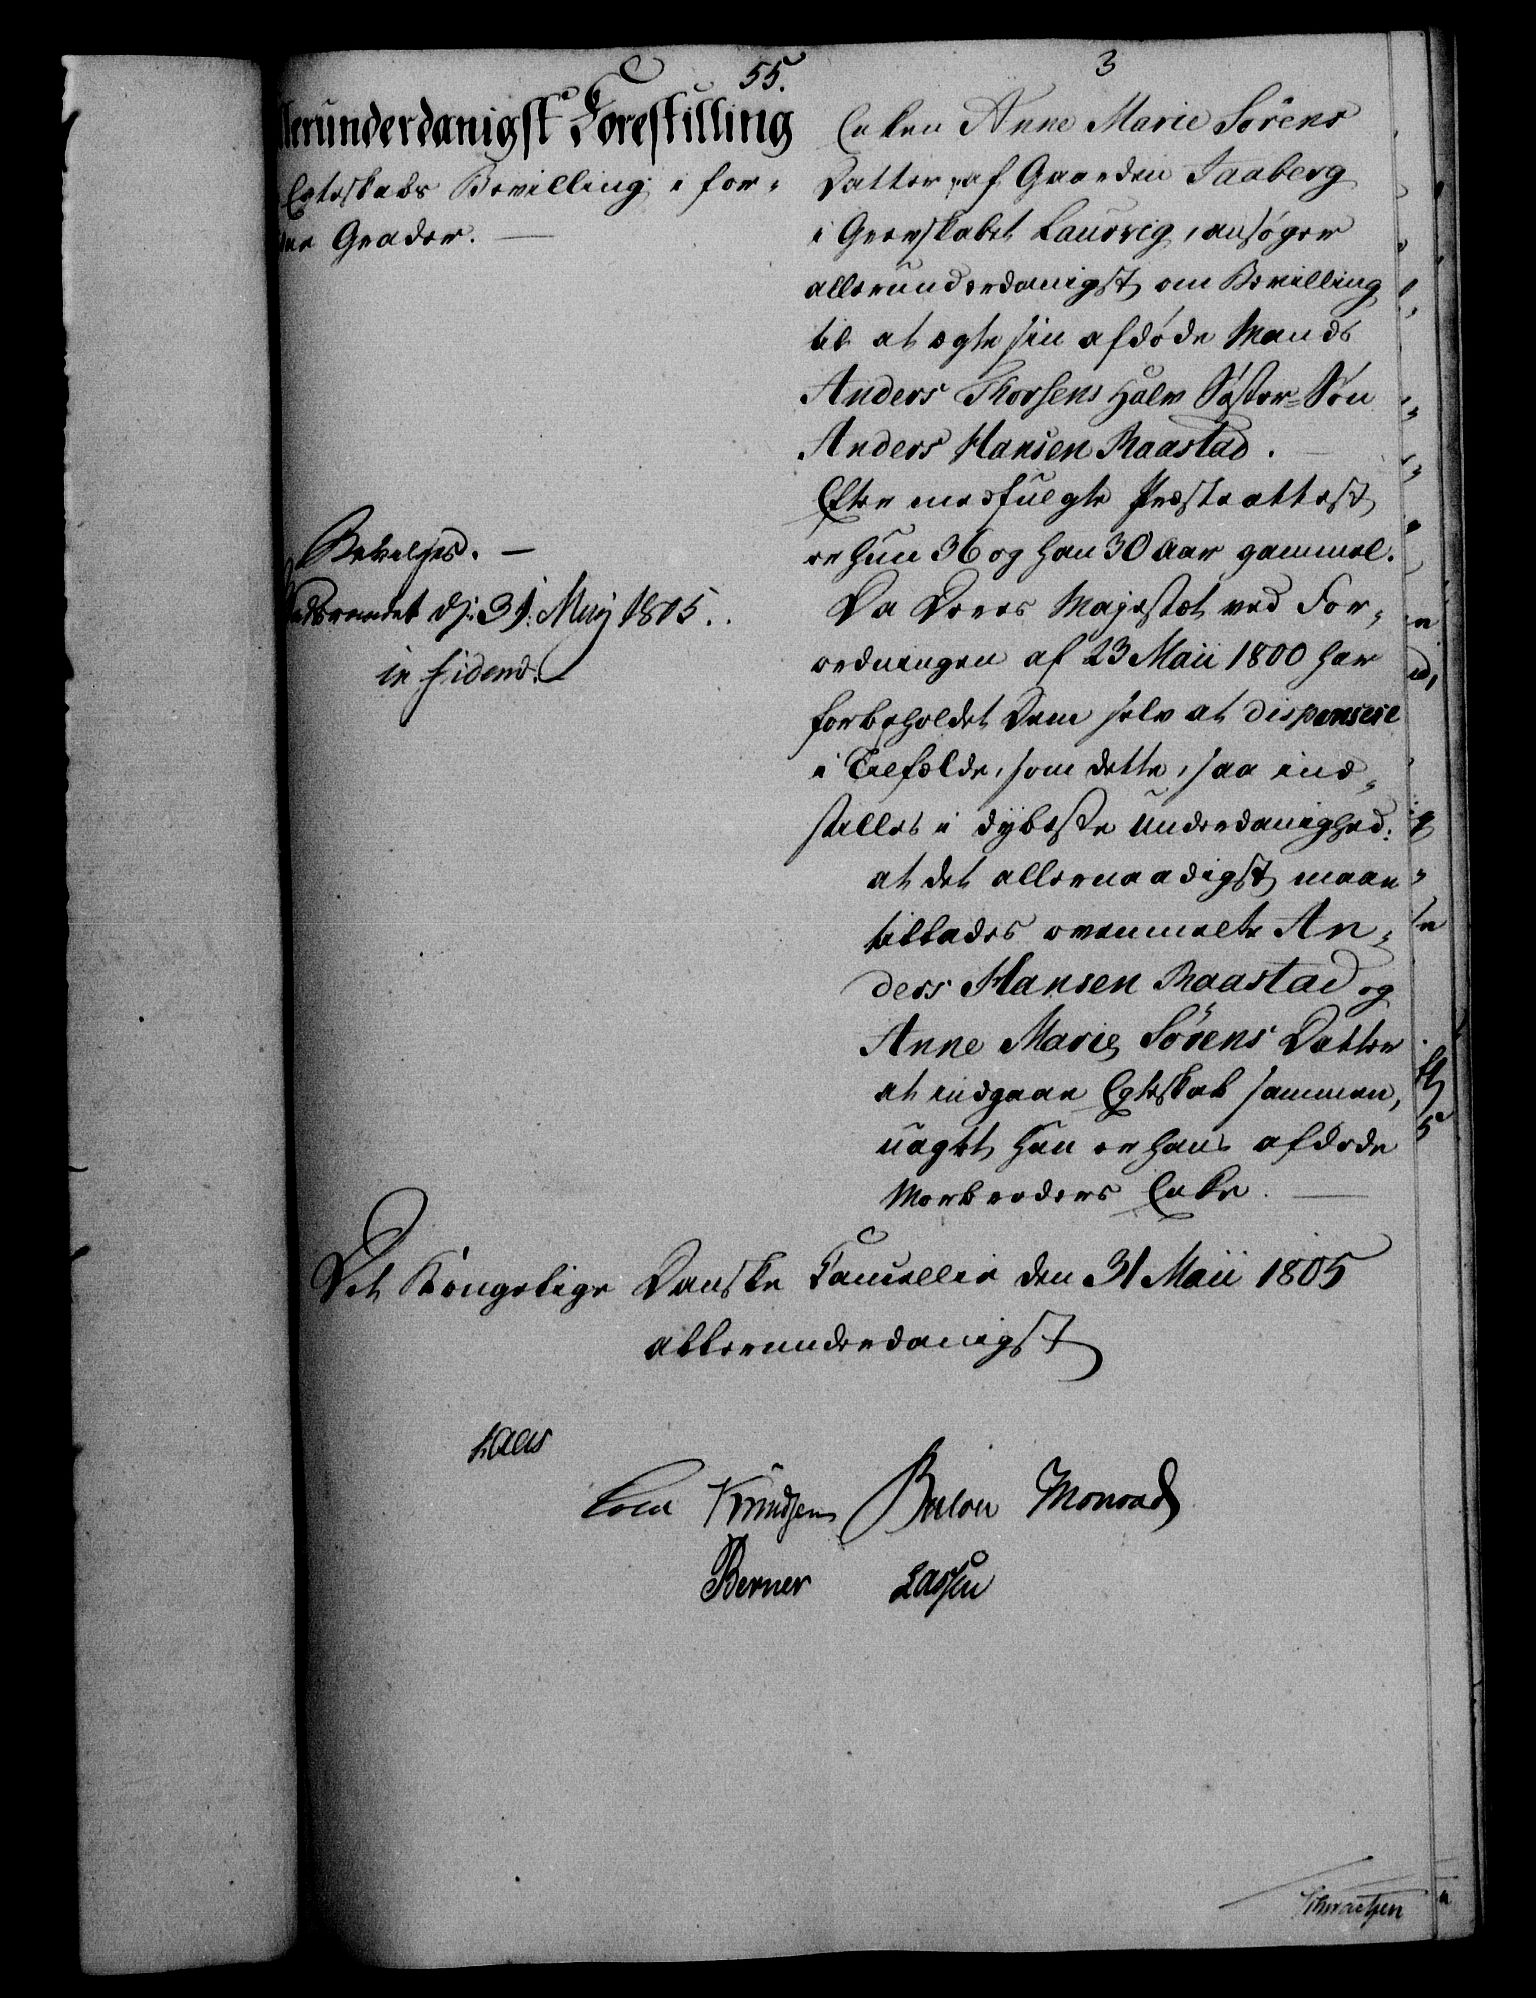 55.
3
llerunderdanigst Forestilling
Egteskabs Bevilling i for-
Grader. —
Enken Anne Marie Sörens
Datter af Gaarden Jaaberg
i Grevskabet Laurvig, ansöger
allerunderdanigst om Bevilling
til at ægte sin afdöde Mands
Anders Thorsens Halv Söster-Sön
Anders Hansen Raastad. —
Efter medfulgte Præsteattest
er hun 36 og han 30 Aar gammel.
Da Deres Majestæt ved For-
ordningen af 23 Maii 1800 har
forbeholdet Dem selv at dispensere
i Tilfælde, som dette, saa ind-
stilles i dybeste Underdanighed:
at det allernaadigst maae
tillades ovenmelte An-
ders Hansen Raastad og
Anne Marie Sörens Datter
at indgaae Egteskab sammen,
uagtet hun er hans afdöde
Morbroders Enke. —
Bevilges. —
d: 31 Maij 1805.
in fidem.
Det Kongelige Danske Cancellie den 31 Maii 1805
allerunderdanigst
Kaas
Cold Knudsen Bülow Monrad
Berner Lassen